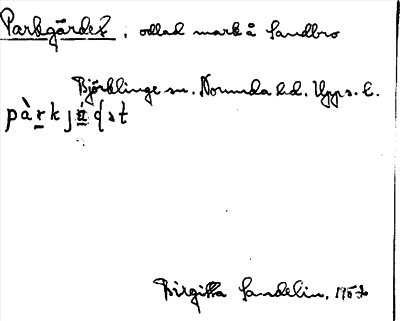 Parkgärdet, odlad mark å Sandbro
Björklinge sn. Norunda hd. Upps. l.
Birgitta Sandelin,